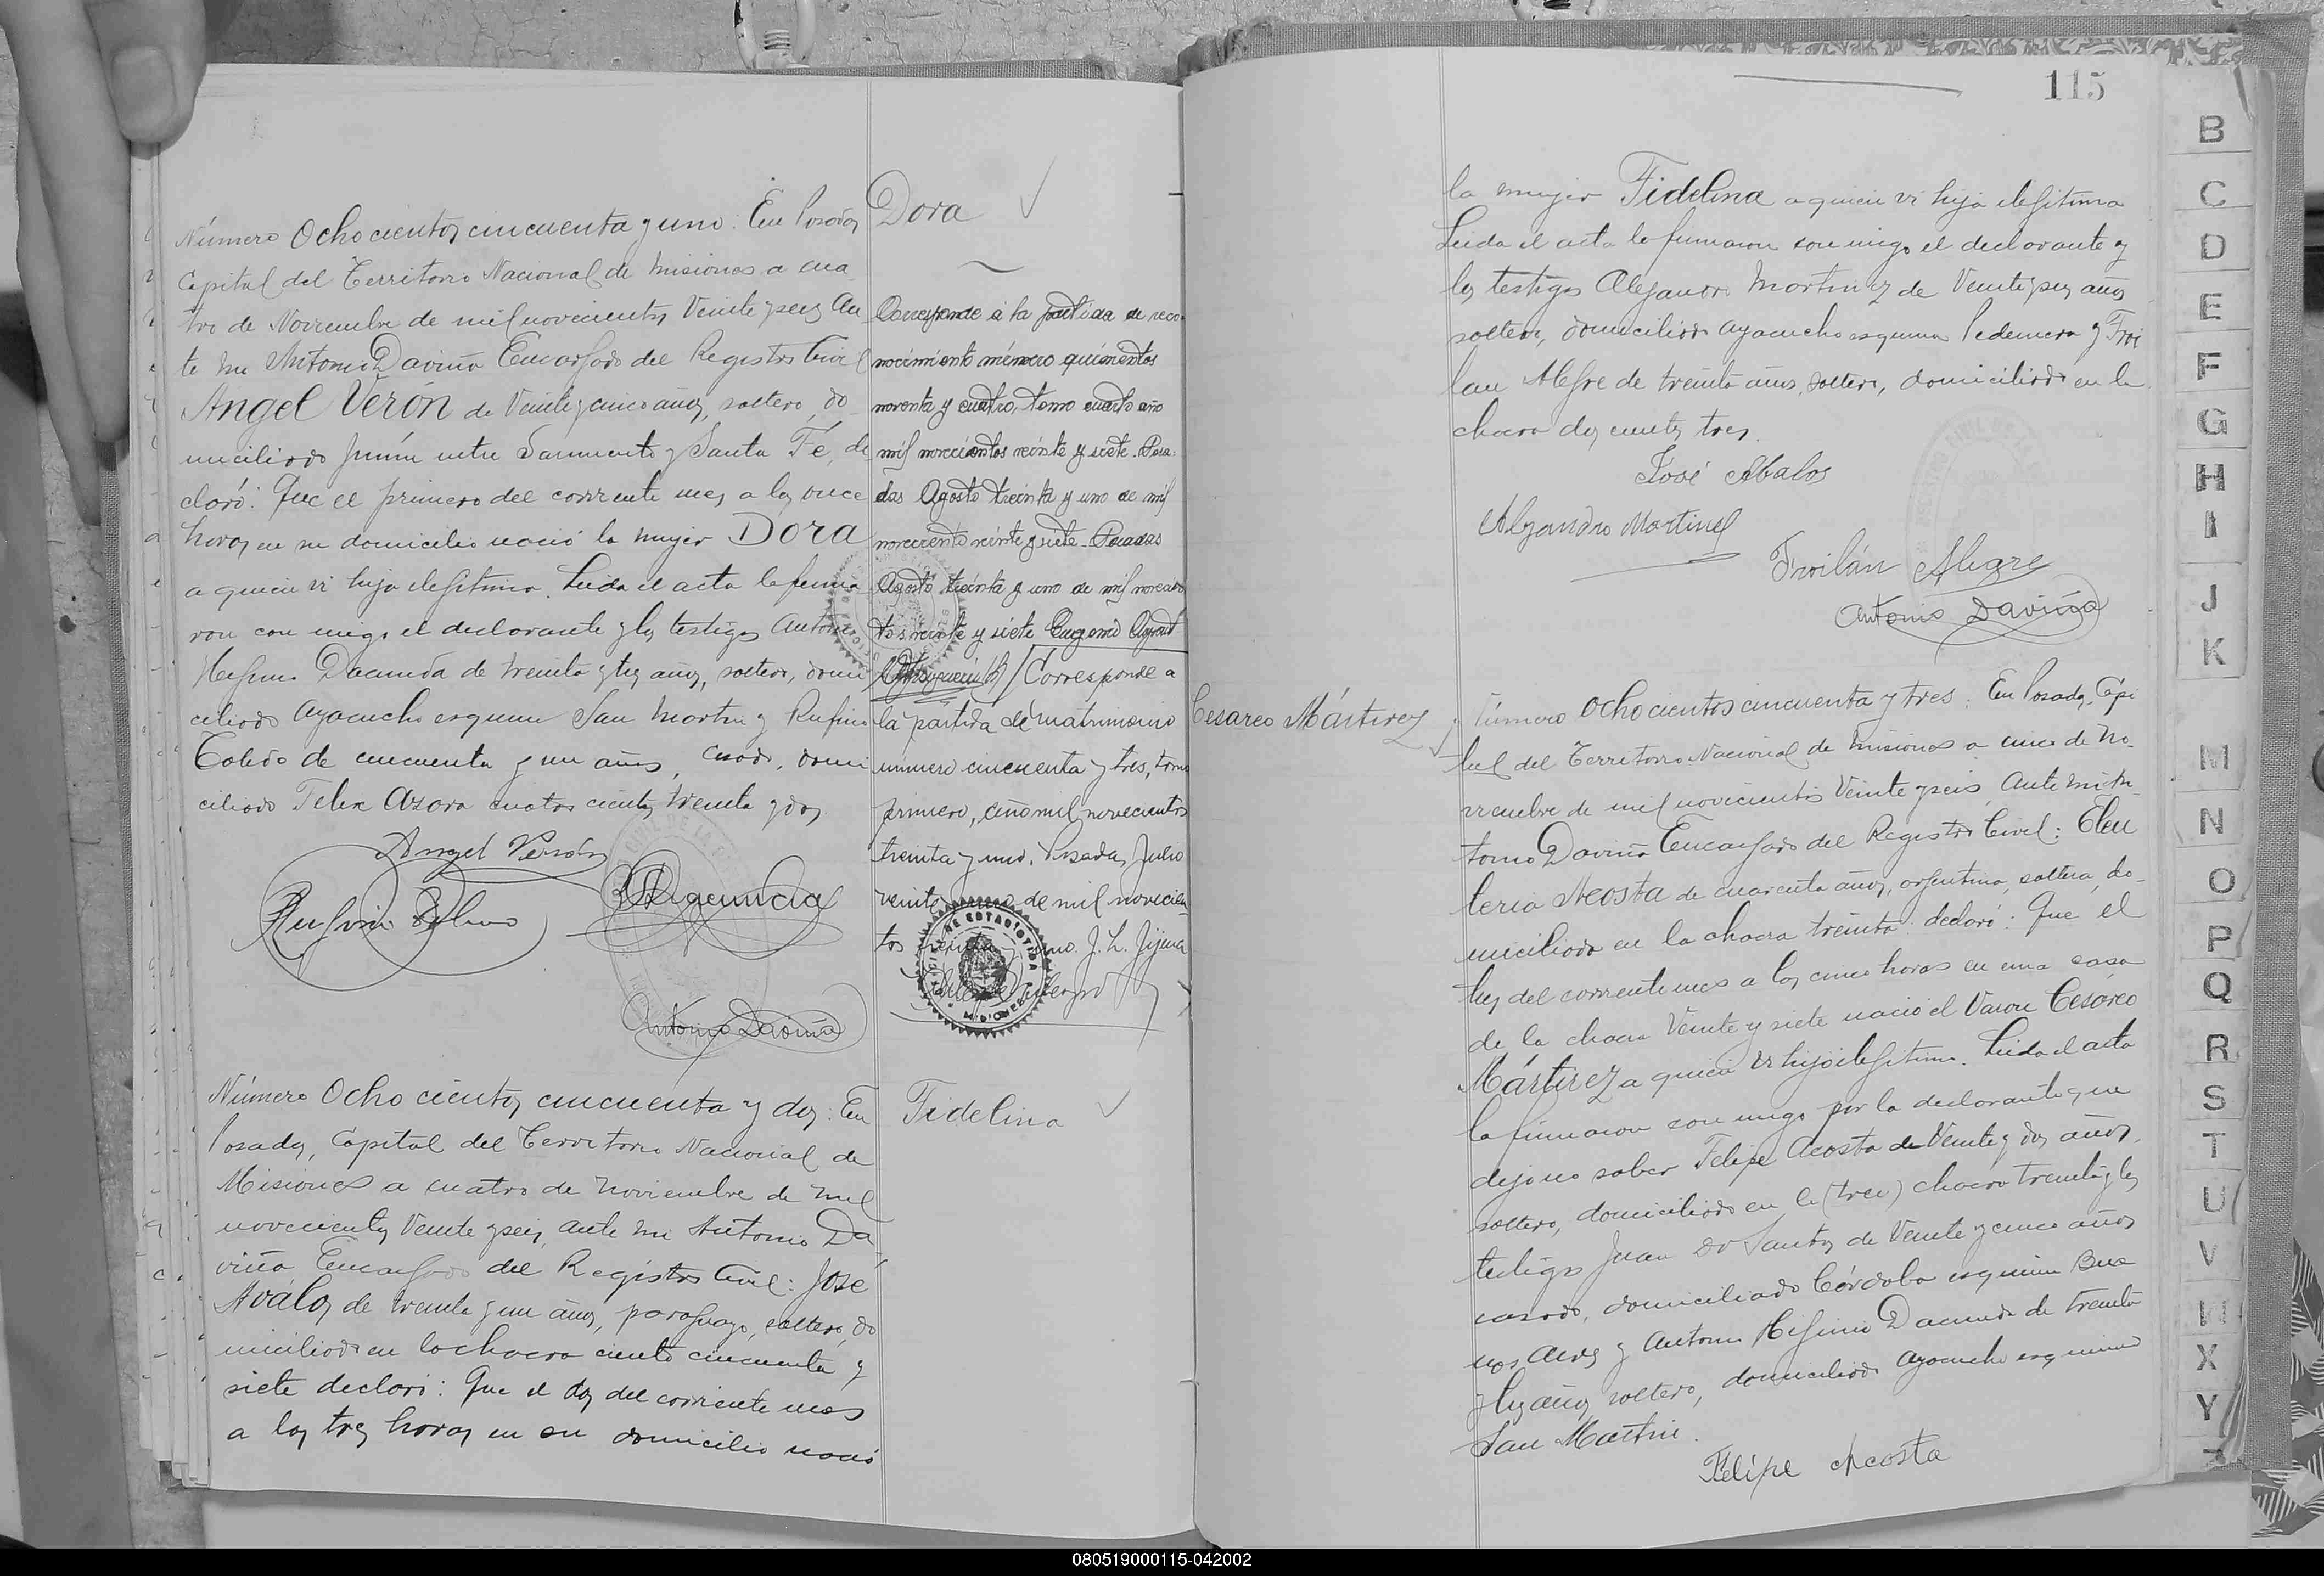 Número Ochocientos cincuenta y uno: En Posadas
Capital del Territorio Nacional de Misiones a cua
tro de Noviembre de mil novecientos Veinte y seis an
te mi Antonio Daviña Encargado del Registro Civil
Angel Verón de Veinte y cinco años, soltero, do
miciliado Junín entre Sarmiento y Santa Fé, de
claró: Que el primero del corriente mes a las once
horas en su domicilio nació la mujer DORA
a quien vi hija ilegítima. Leida el acta la firma
ron con migo el declarante y los testigos Antonio
Higinio Dacunda de treinta y tres años, soltero, domi
ciliado Ayacucho esquina San Martin y Rufino
Toledo de cincuenta y un años, casado, domi
ciliado Felix Azara cuatro cientos treinta y dos
Angel Verón
Rufino Toledo
Antonio Daviña
Dora
Corresponde á la partida de reco-
nocimiento número quinientos
noventa y cuatro, tomo cuarto año
mil novecientos veinte y siete. Posa-
das Agosto treinta y uno de mil
novecientos veinte y siete - Posadas
Agosto treinta y uno de mil novecien
tos veinte y siete Eugenio
Corresponde a
la partida de matrimonio
número cincuenta y tres, tomo
primero, año mil novecientos
treinta y uno. Posadas, Julio
veinte de mil novecien-
tos treinta y uno. J. L.
Número Ocho cientos cincuenta y dos: En
Posadas, Capital del Territorio Nacional de
Misiones a cuatro de Noviembre de mil
novecientos Veinte y seis, ante mi Antonio Da
viña Encargado del Registro Civil: José
Aválos de treinta y un años, paraguayo, soltero, do
miciliado en la chacra ciento cincuenta y
siete declaró: Que el dos del corriente mes
a las tres horas en su domicilio nació
Fidelina
115
la mujer Fidelina a quien vi hija ilegítima
Leida el acta la firmaron con migo el declarante y
los testigos Alejandro Martinez de Veinte y seis años
soltero, domiciliado Ayacucho esquina Pedernera y Froi
lan Alegre de treinta años, soltero, domiciliado en la
chacra dos cientos tres.
José Abalos
Alejandro Martinez
Froilán Alegre
Antonio Daviña
Cesareo Mártirez
Número Ochocientos cincuenta y tres: En Posadas, Capi
tal del Territorio Nacional de Misiones a cinco de No-
viembre de mil novecientos Veinte y seis Ante mi An-
tonio Daviña Encargado del Registro Civil: Eleu
teria Acosta de cuarenta años, argentina, soltera, do-
miciliada en la chacra treinta: declaró: Que el
tres del corriente mes a las cinco horas en una casa
de la chacra Veinte y siete nació el Varon Cesáreo
Mártirez a quien vi hijo ilegítimo. Leida el acta
la firmaron con migo por la declarante que
dijo no saber Felipe Acosta de Veinte y dos años,
soltero, domiciliado en la (trei) chacra treinta y los
testigos Juan Do Santos de Veinte y cinco años
casado, domiciliado Córdoba esquina Bue
nos Aires y Antonio Higinio Dacunda de treinta
y tres años, soltero, domiciliado Ayacucho esquina
San Martin.
Felipe Acosta
B
C
D
E
F
G
H
I
J
K
M
N
O
P
Q
R
S
T
U
V
W
X
Y
080519000115-042002